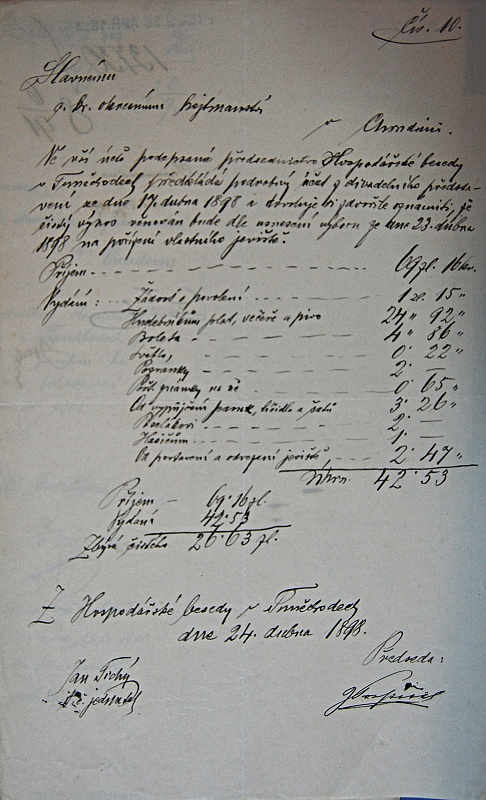 Čís. 10.
Slavnému
c. kr. okresnímu hejtmanství
v Chrudimi.
Ve vší úctě podepsané předsednictvo Hospodářské besedy
v Tuněchodech předkládá podrobný účet z divadelního předsta-
vení ze dne 17. dubna 1898 a dovoluje si zdvořile oznámiti, že
čistý výnos věnován bude dle usnesení výboru ze dne 23. dubna
1898 na pořízení vlastního jeviště.
Příjem 69 zl. 16 kr.
Vydání: Žádost o povolení 1 zl. 15 "
Hudebníkům plat, večeře a pivo 24 " 92 "
4 " 86 "
Světlo, 0 " 22 "
2 " —
známky na 0 " 65 "
Od vypůjčení paruk, líčidla a šatů 3 " 26 "
2 " —
Hasičům 1 " —
Od postavení a odvezení jeviště 2 " 47 "
42 53
Příjem — 69·16 zl.
Vydání 42·53
Zbývá čistého 26·63 zl.
Z Hospodářské besedy v Tuněchodech
dne 24. dubna 1898.
Předseda:
Jan Tichý
jednatel